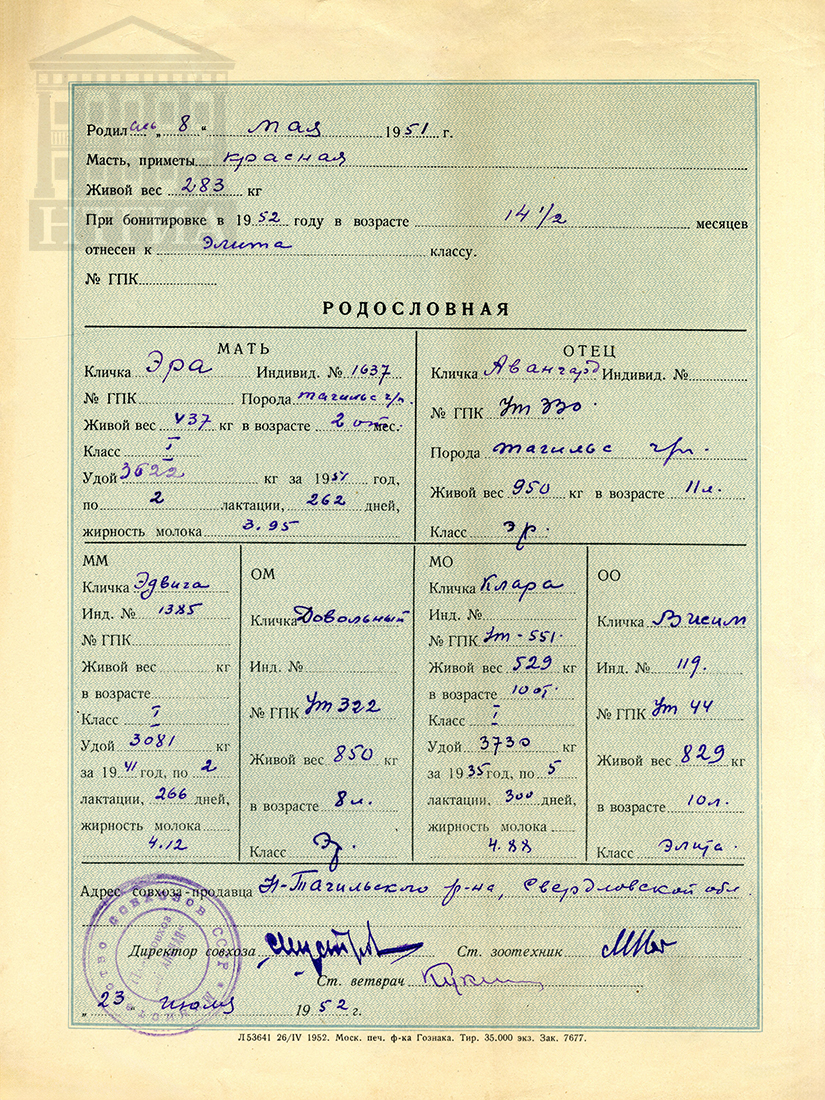 НТГИА
Родилась „ 8 “ мая 1951 г.
Масть, приметы красная
Живой вес 283 кг
При бонитировке в 1952 году в возрасте 14 1/2 месяцев
отнесен к Элита классу.
№ ГПК
РОДОСЛОВНАЯ
МАТЬ
Кличка Эра Индивид. № 1637
№ ГПК Порода тагильс ч/п.
Живой вес 437 кг в возрасте 2 от мес.
Класс I
Удой 3622 кг за 1951 год,
по 2 лактации, 262 дней,
жирность молока 3.95
ОТЕЦ
Кличка Авангард Индивид. №
№ ГПК Ут 330.
Порода тагильс ч/п.
Живой вес 950 кг в возрасте 11 л.
Класс эр.
ММ
Кличка Эдвига
Инд. № 1385
№ ГПК
Живой вес кг
в возрасте
Класс I
Удой 3081 кг
за 1941 год, по 2
лактации, 266 дней,
жирность молока
4.12
ОМ
Кличка Довольный
Инд. №
№ ГПК Ут 322
Живой вес 850 кг
в возрасте 8 л.
Класс Эр.
МО
Кличка Клара
Инд. №
№ ГПК Ут-551.
Живой вес 529 кг
в возрасте 10 от.
Класс I
Удой 3730 кг
за 1935 год, по 5
лактации, 300 дней,
жирность молока
4.88
ОО
Кличка Висим
Инд. № 119.
№ ГПК Ут 44
Живой вес 829 кг
в возрасте 10 л.
Класс Элита.
Адрес совхоза-продавца Н-Тагильского р-на, Свердловской обл
Директор совхоза Ст. зоотехник
Ст. ветврач
„ 23 июля 1952 г.
СОВХОЗОВ СССР
Л53641 26/IV 1952. Моск. печ. ф-ка Гознака. Тир. 35.000 экз. Зак. 7677.